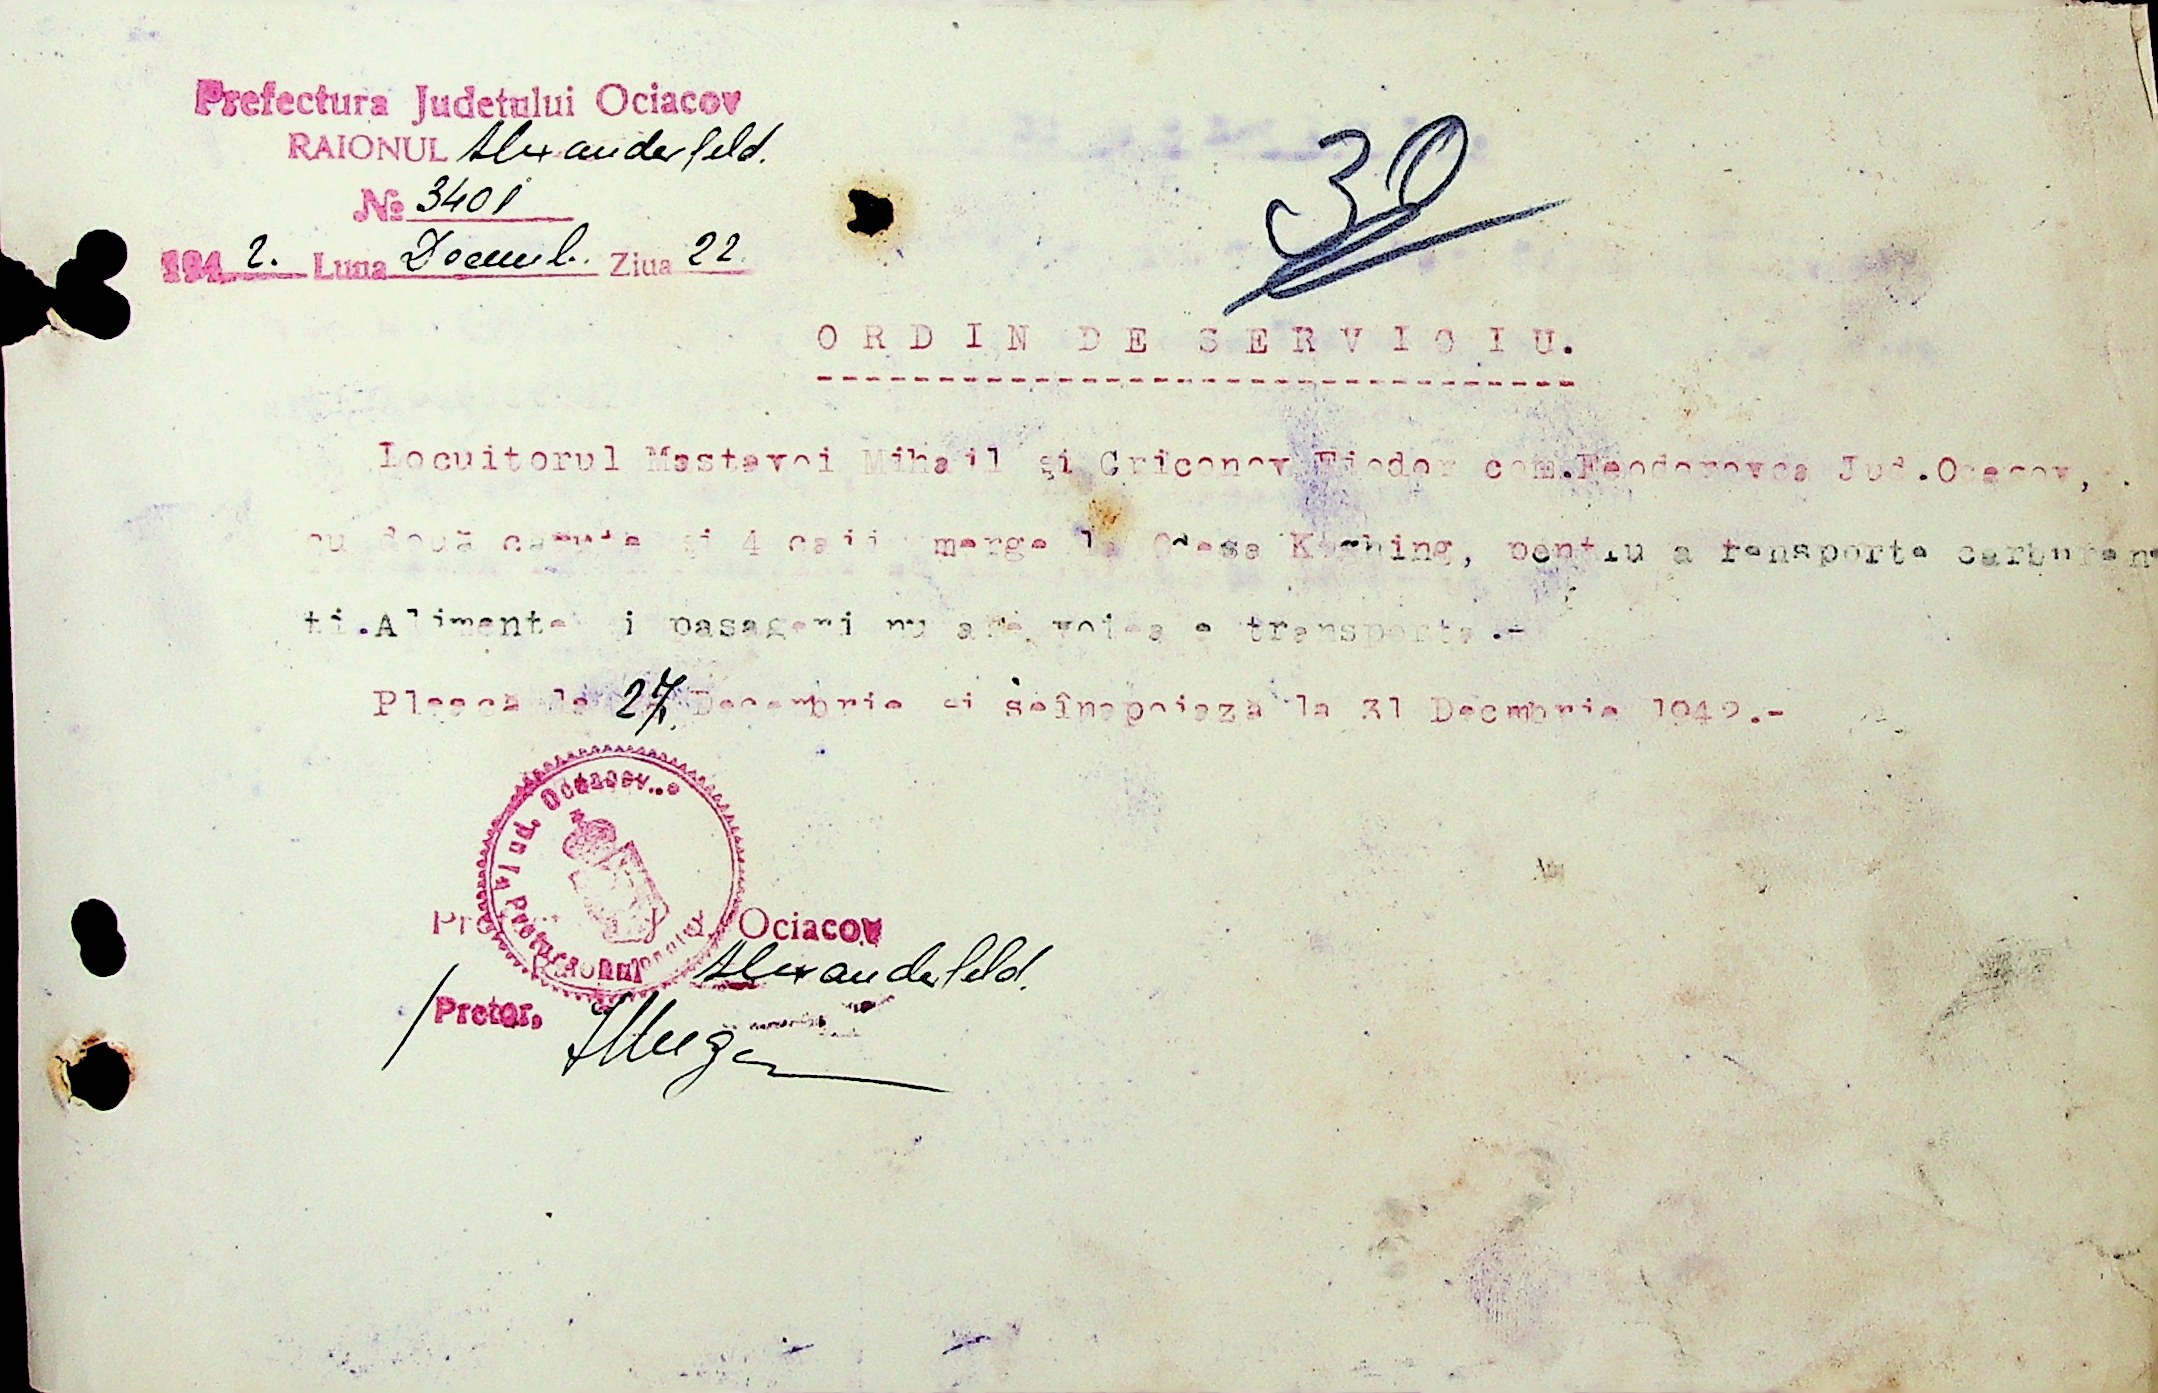 Prefectura Județului Ociacov
RAIONUL Alexanderfeld.
№ 3401
1942. Luna Decemb. Ziua 22
30
ORDIN DE SERVICIU.
Locuitorul Mastavoi Mihail și Griconov Fiodor com.Feodorovca Jud.Oceacov,
cu două caruțe și 4 caii merge la Odesa pentru a ransporta carburan
ti.Alimente și pasageri nu are voiea a transporta.-
Pleacă la 27 Decembrie și seînapoiază la 31 Decmbrie 1942.-
Jud. Oceacov
Ociacov
Raionul Alexanderfeld.
Pretor,